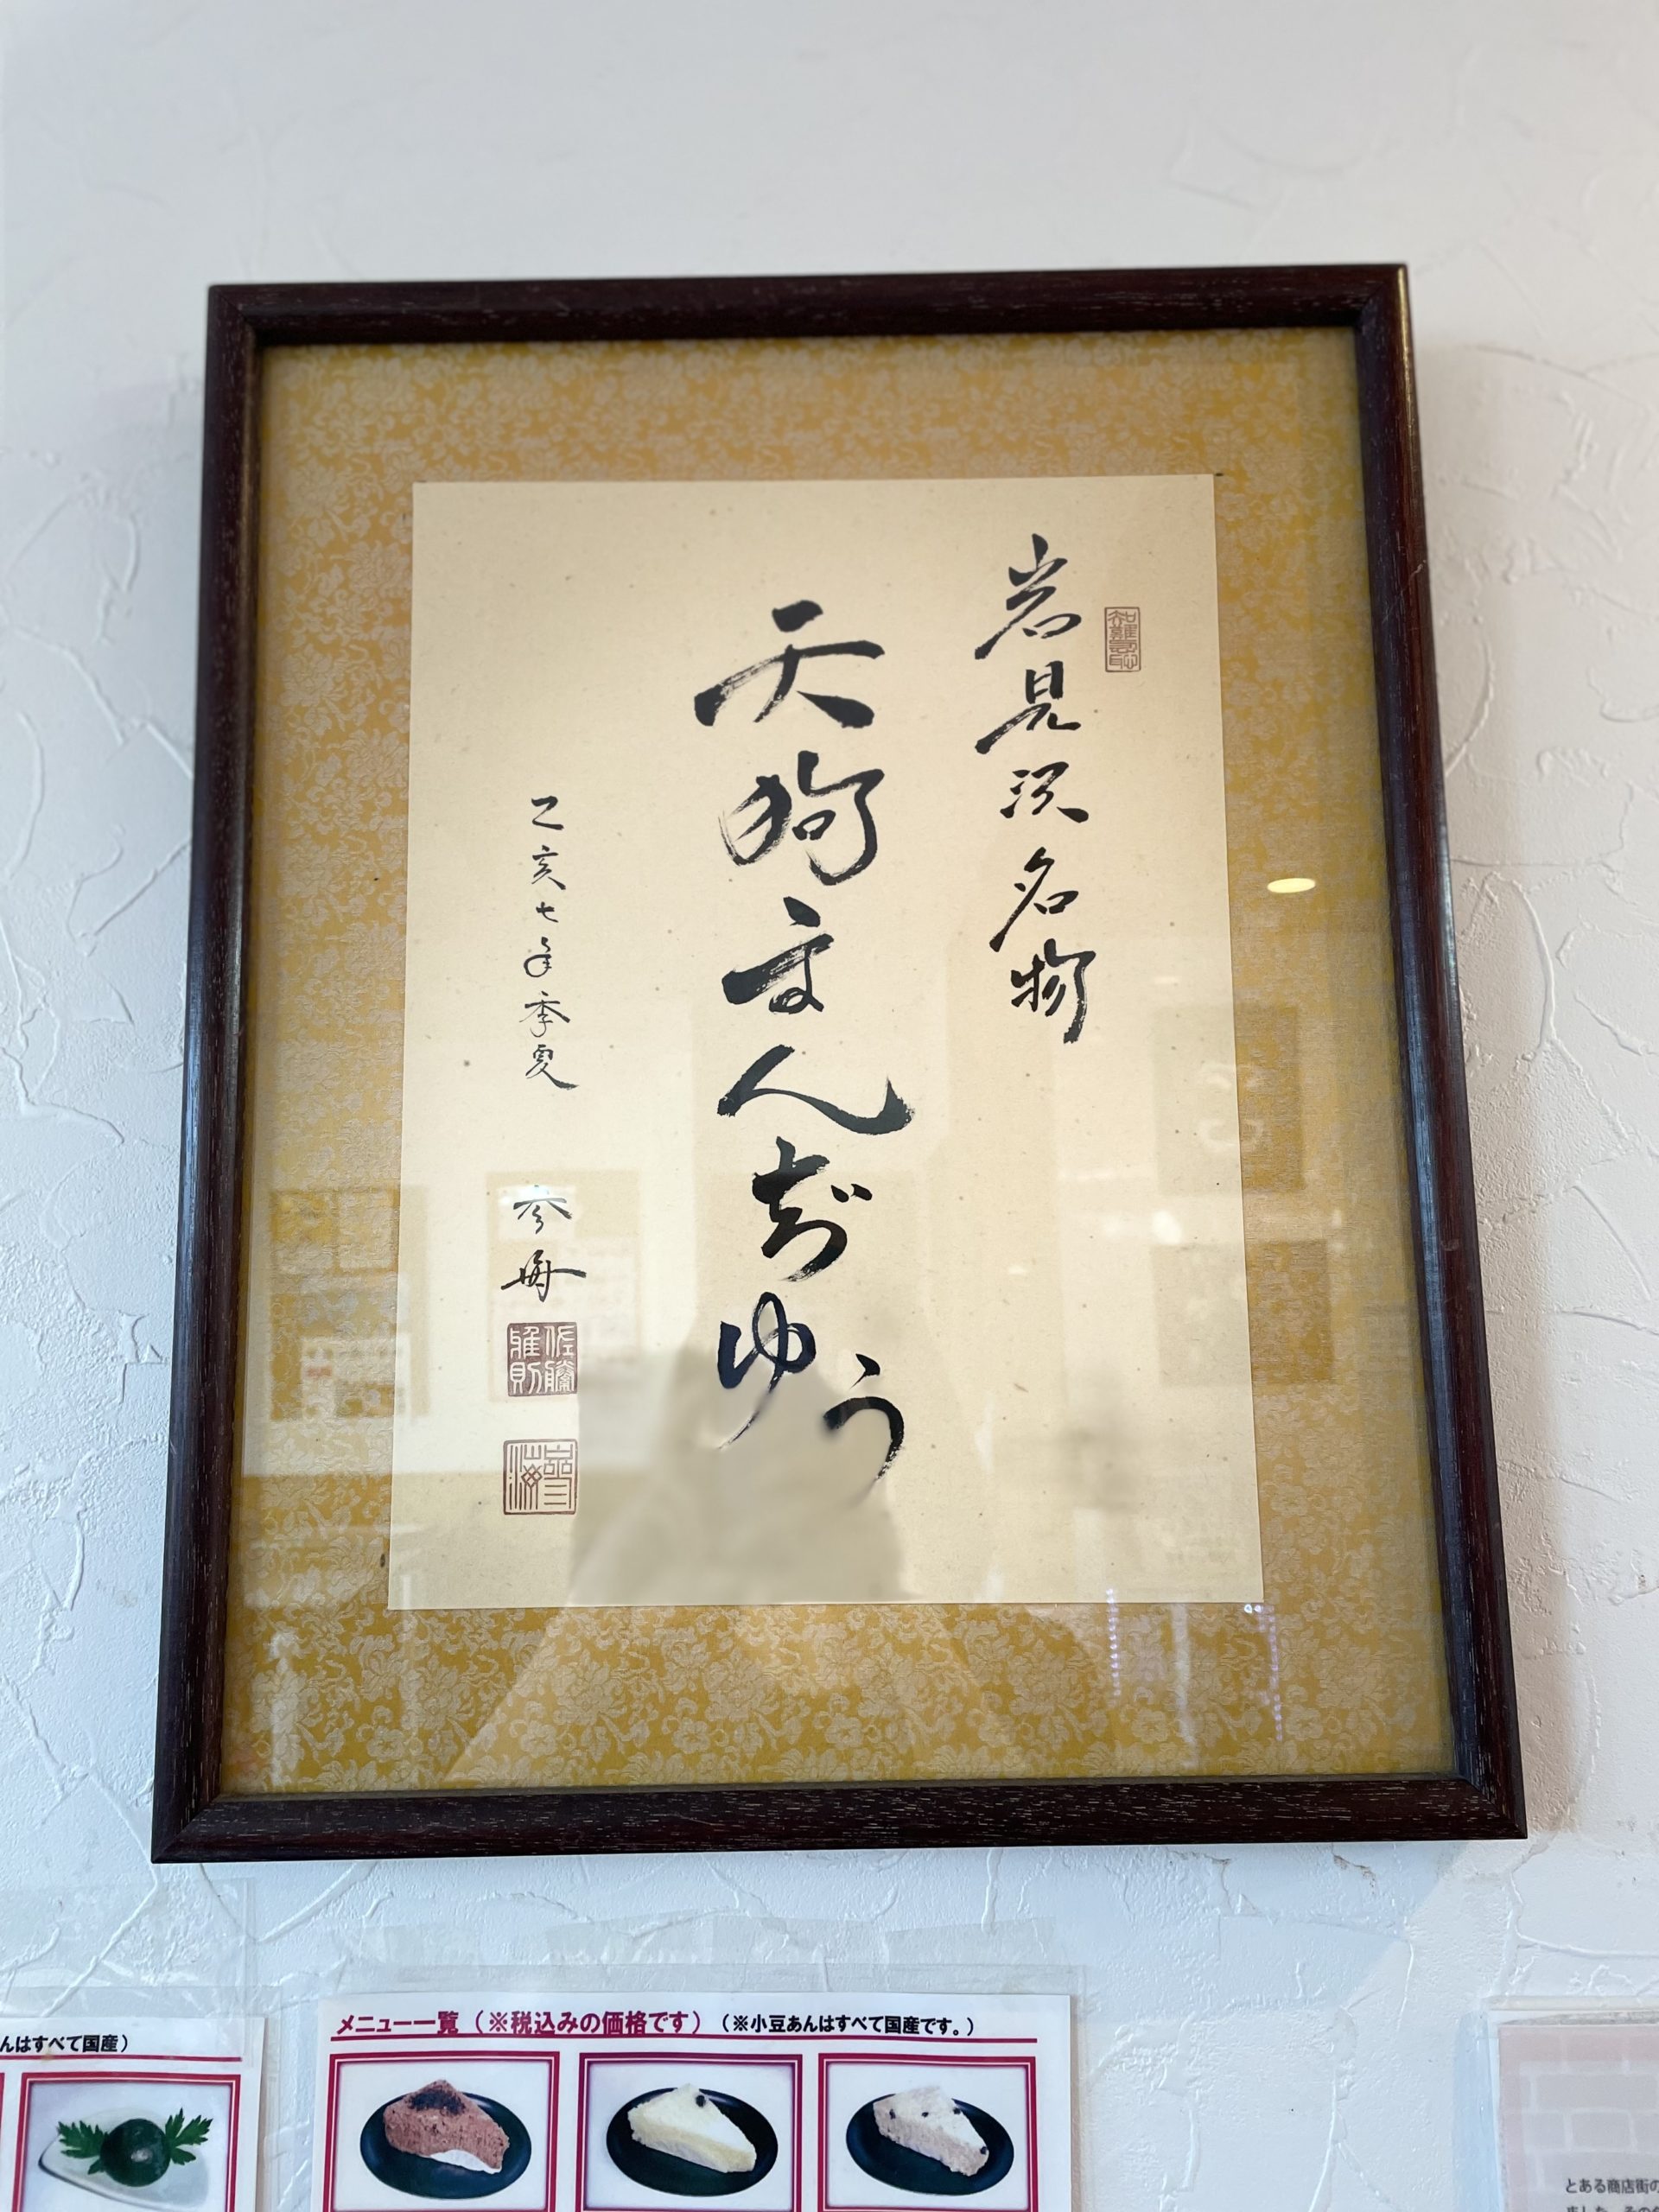 岩見沢名物
天狗まんぢゆう
乙亥七年季夏
佐藤雅則
メニュー一覧（※税込みの価格です）（※小豆あんはすべて国産です。）
んはすべて国産）
とある商店街の